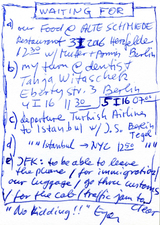 WAITING FOR
a) our Food @ ALTE SCHMIEDE
Restaurant 3 I 2016
1230 w/ Berlin
b) my turn @ dentist
Tanja Witaschek
Ebertystr. 3 Berlin
4 I 16 11 30 5 I 16
c) departure Turkish Airlines
to Istanbul w/ J.S. Berlin
Tegel
d) " Istanbul → NYC 1250 "
e) JFK: to be able to leave
the plane / for immigration/
our luggage / go thru customs
/ for the cab / traffic jam to
"No kidding!!" clear